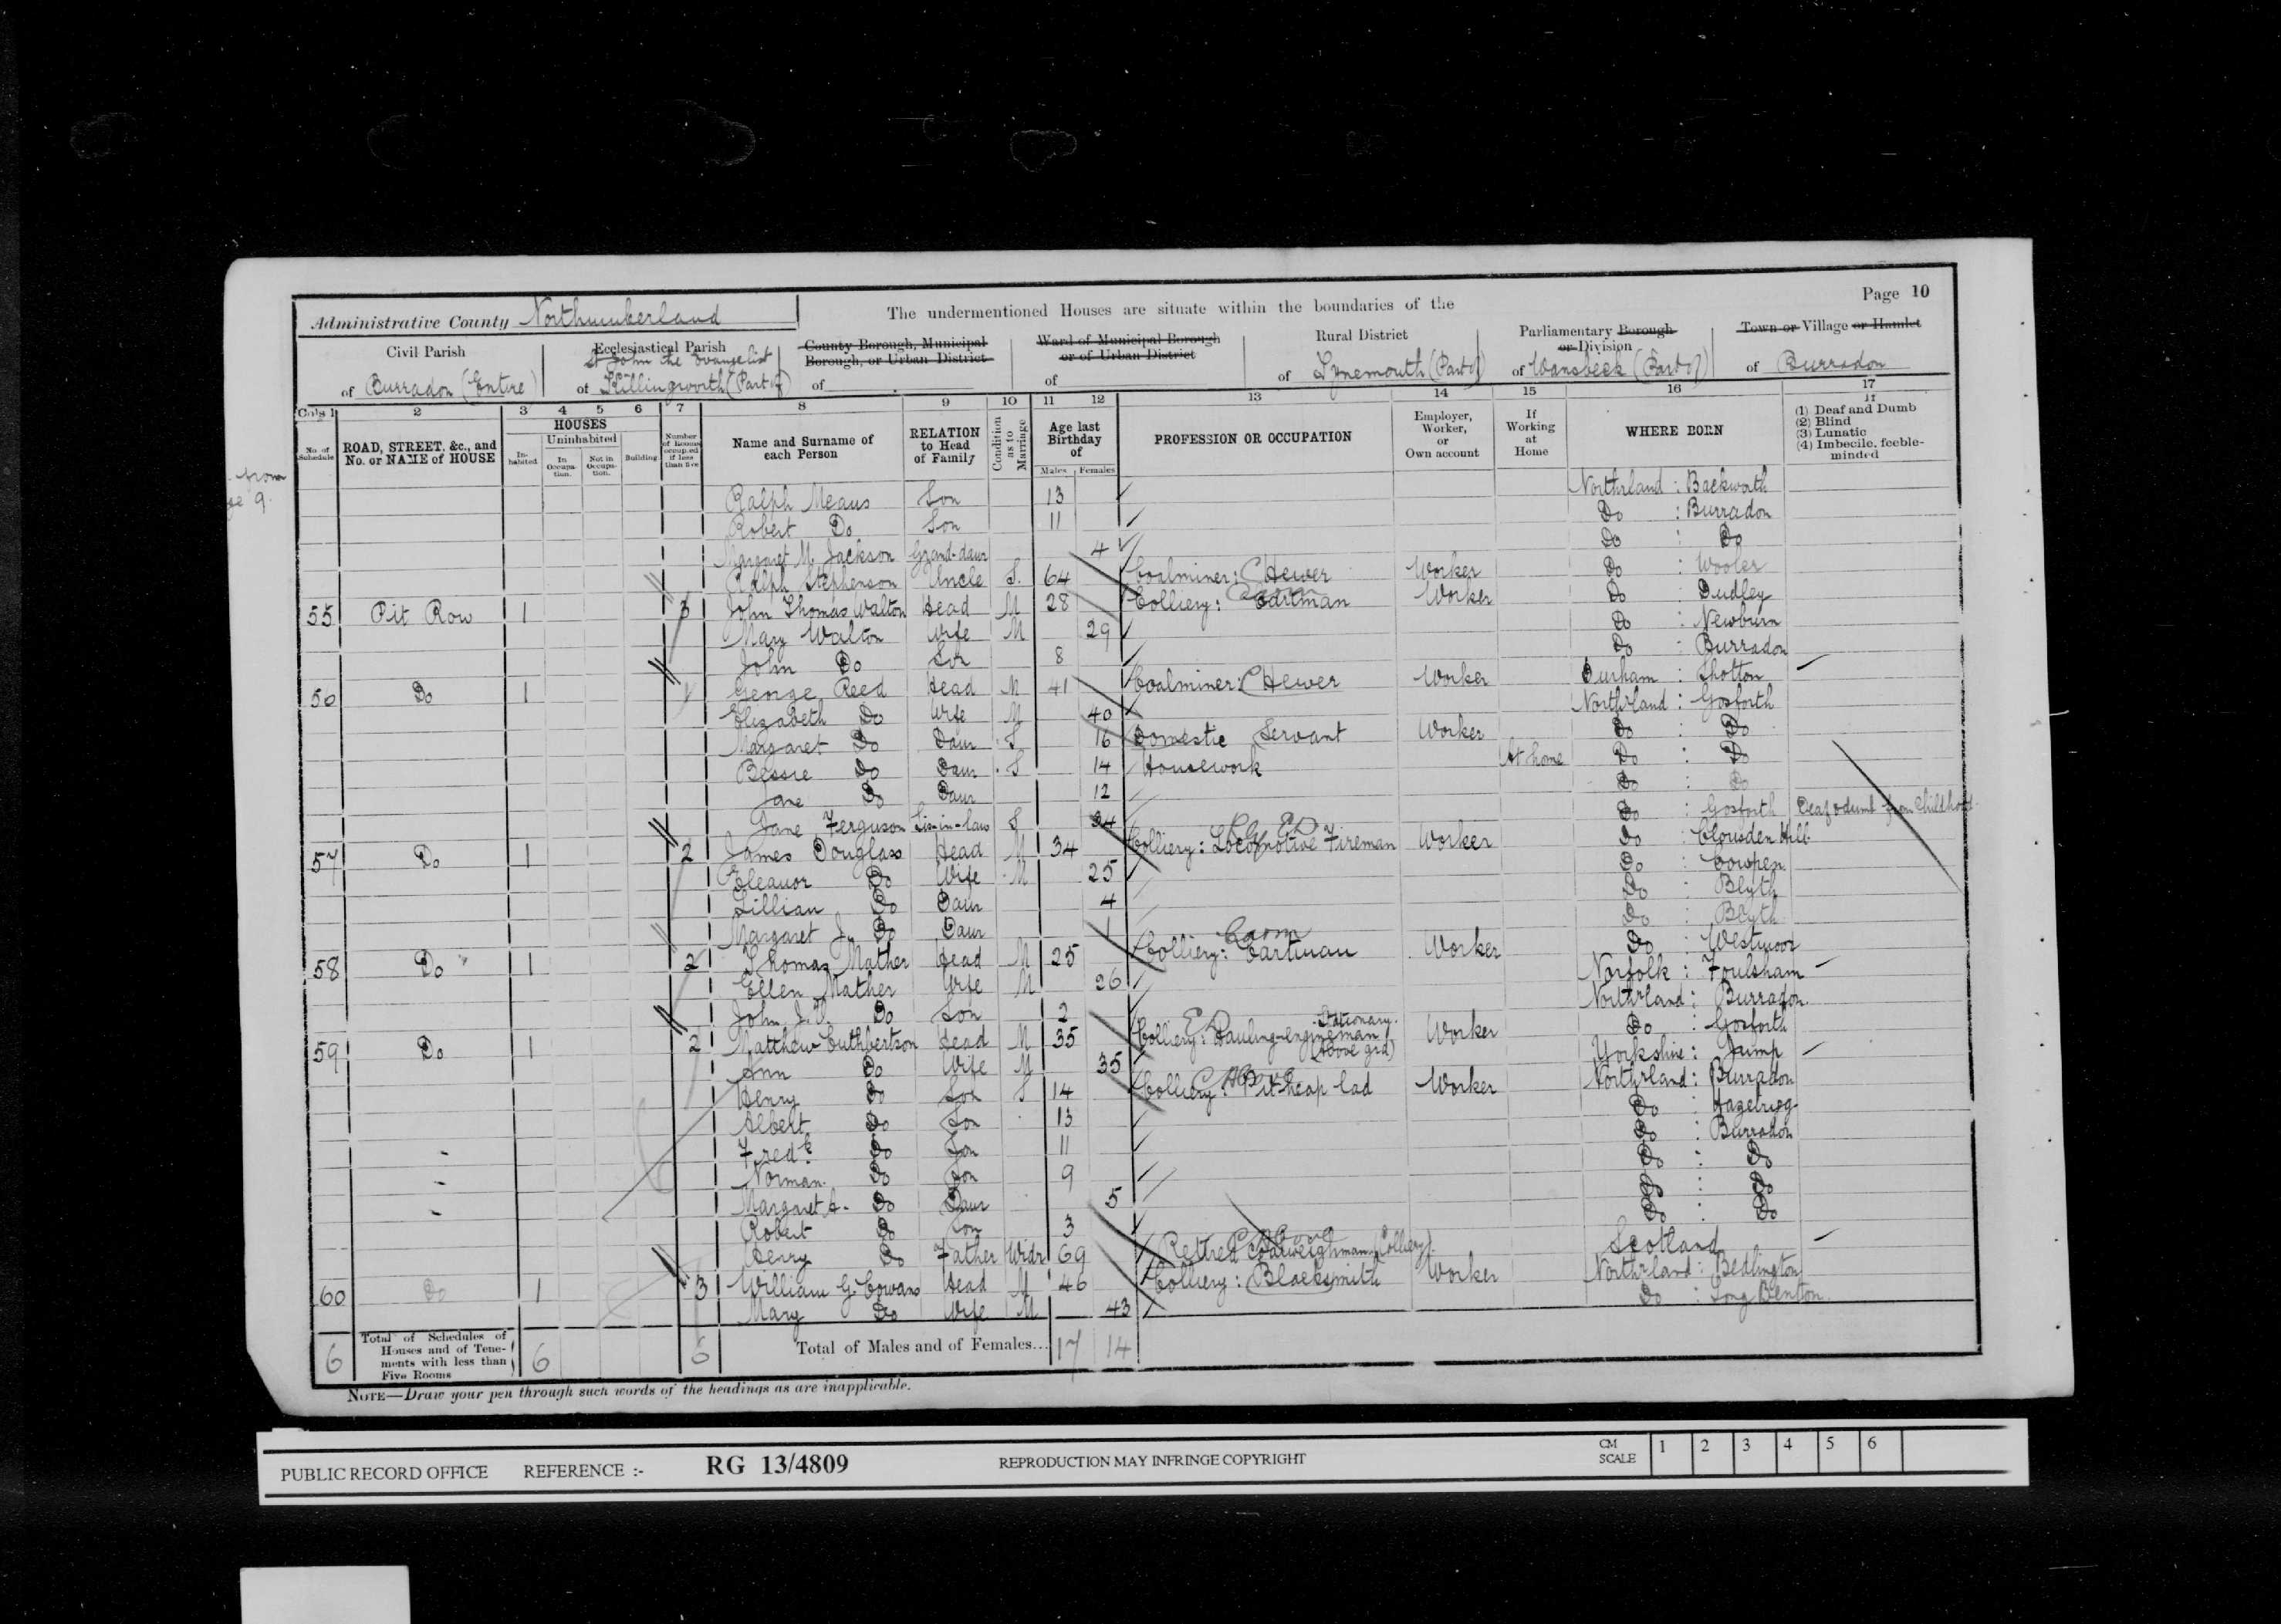 Page 10
Administrative County Northumberland
The undermentioned Houses are situate within the boundaries of the
Civil Parish
of Burradon (Entire)
Ecclesiastical Parish
St John the Evangelist
of Killingworth (Part of)
County Borough, Municipal
Borough, or Urban District
of
Ward of Municipal Borough
or of Urban District
of
Rural District
of Tynemouth (Part of)
Parliamentary Borough
or Division
of Wansbeck (Part of)
Town or Village or Hamlet
of Burradon
Cols 1 2 3 4 5 6 7 8 9 10 11 12 13 14 15 16 17
No. of Schedule
ROAD, STREET, &c., and No. or NAME of HOUSE
HOUSES
In-habited
Uninhabited
In Occupa-tion.
Not in Occupa-tion.
Building
Number of Rooms occupied if less than five
Name and Surname of each Person
RELATION to Head of Family
Condition as to Marriage
Age last Birthday of
Males Females
PROFESSION OR OCCUPATION
Employer, Worker, or Own account
If Working at Home
WHERE BORN
If
(1) Deaf and Dumb
(2) Blind
(3) Lunatic
(4) Imbecile, feeble-minded
from
ge 9.
Ralph Means Son 13 Northrland : Backworth
Robert Do Son 11 Do : Burradon
Margaret M. Jackson Grand-daur 4 Do : Do
Ralph Stephenson Uncle S. 64 Coalminer: Hewer Worker Do : Wooler
55 Pit Row 1 3 John Thomas Walton Head M 28 Colliery: Cartman Worker Do : Dudley
Mary Walton Wife M 29 Do : Newburn
John Do Son 8 Do : Burradon
56 Do 1 George Reed Head M 41 Coalminer: Hewer Worker Durham : Shotton
Elizabeth Do Wife M 40 Northrland : Gosforth
Margaret Do Daur S 16 Domestic Servant Worker Do : Do
Bessie Do Daur S 14 Housework At home Do : Do
Jane Do Daur 12 Do : Do
Jane Ferguson Sis-in-law S 24 Do : Gosforth Deaf & dumb from Childhood
57 Do 1 2 James Douglass Head M 34 Colliery: Locomotive Fireman Worker Do : Clousden Hill
Eleanor Do Wife M 25 Do : Cowpen
Lillian Do Daur 4 Do : Blyth
Margaret J. Do Daur 1 Do : Blyth
58 Do 1 2 Thomas Mather Head M 25 Colliery: Cartman Worker Do : Westmoor
Ellen Mather Wife M 26 Norfolk : Foulsham
John J. Do Son 2 Northrland : Burradon
59 Do 1 2 Matthew Cuthbertson Head M 35 Colliery: Hauling-engineman Stationary (Above grd) Worker Do : Gosforth
Ann Do Wife M 35 Yorkshire : Jump
Henry Do Son S 14 Colliery: Pit-heap lad Worker Northrland : Burradon
Albert Do Son 13 Do : Hazelrigg
Fredk Do Son 11 Do : Burradon
Norman Do Son 9 Do : Do
Margaret A. Do Daur 5 Do : Do
Robert Do Son 3 Do : Do
Henry Do Father Widr 69 Retired Coalweighman (Colliery) Scotland
60 Do 1 3 William G. Cowans Head M 46 Colliery: Blacksmith Worker Northrland : Bedlington
Mary Do Wife M 43 Do : Long Benton
6 Total of Schedules of Houses and of Tene-ments with less than Five Rooms 6 6 Total of Males and of Females... 17 14
NOTE—Draw your pen through such words of the headings as are inapplicable.
PUBLIC RECORD OFFICE REFERENCE :- RG 13/4809 REPRODUCTION MAY INFRINGE COPYRIGHT CM SCALE 1 2 3 4 5 6